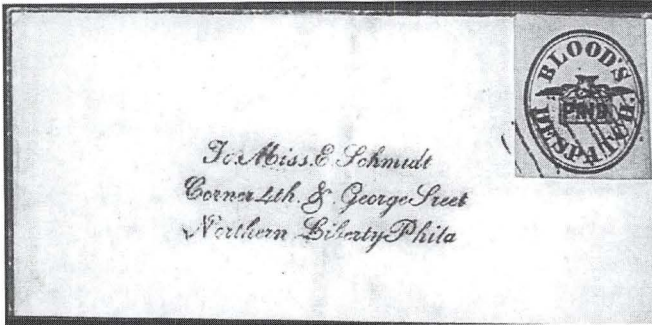 BLOOD'S
PAID
DESPATCH.
To Miss. E. Schmidt
Corner 4th. & George Sreet
Northern Liberty Phila